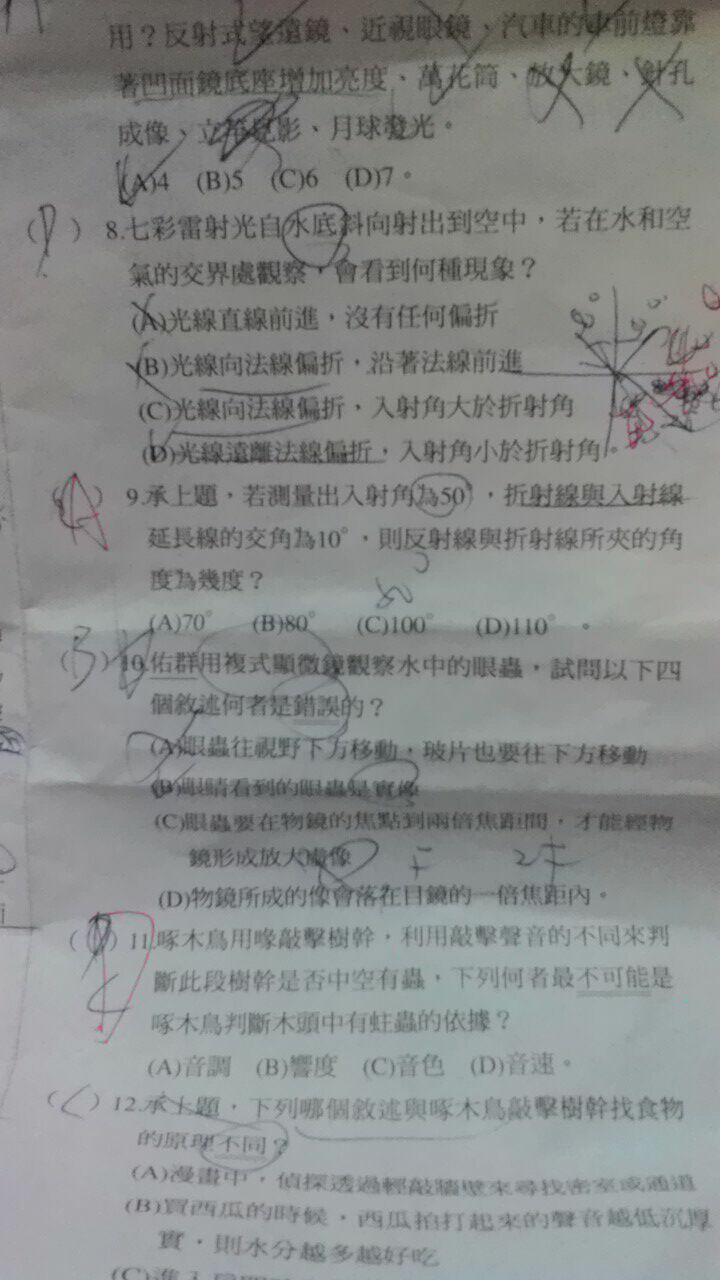 用？反射式望遠鏡、近視眼鏡、汽車的車前燈靠
著凹面鏡底座增加亮度、萬花筒、放大鏡、針孔
成像、立竿見影、月球發光。
(A)4 (B)5 (C)6 (D)7。
(D) 8.七彩雷射光自水底斜向射出到空中，若在水和空
氣的交界處觀察，會看到何種現象？
(A)光線直線前進，沒有任何偏折
(B)光線向法線偏折，沿著法線前進
(C)光線向法線偏折，入射角大於折射角
(D)光線遠離法線偏折，入射角小於折射角。
(A) 9.承上題，若測量出入射角為50°，折射線與入射線
延長線的交角為10°，則反射線與折射線所夾的角
度為幾度？
(A)70° (B)80° (C)100° (D)110°。
(B) 10.佑群用複式顯微鏡觀察水中的眼蟲，試問以下四
個敘述何者是錯誤的？
(A)眼蟲往視野下方移動，玻片也要往下方移動
(B)眼睛看到的眼蟲是實像
(C)眼蟲要在物鏡的焦點到兩倍焦距間，才能經物
鏡形成放大虛像
(D)物鏡所成的像會落在目鏡的一倍焦距內。
( ) 11.啄木鳥用喙敲擊樹幹，利用敲擊聲音的不同來判
斷此段樹幹是否中空有蟲，下列何者最不可能是
啄木鳥判斷木頭中有蛀蟲的依據？
(A)音調 (B)響度 (C)音色 (D)音速。
(C) 12.承上題，下列哪個敘述與啄木鳥敲擊樹幹找食物
的原理不同？
(A)漫畫中，偵探透過輕敲牆壁來尋找密室或通道
(B)買西瓜的時候，西瓜拍打起來的聲音越低沉厚
實，則水分越多越好吃